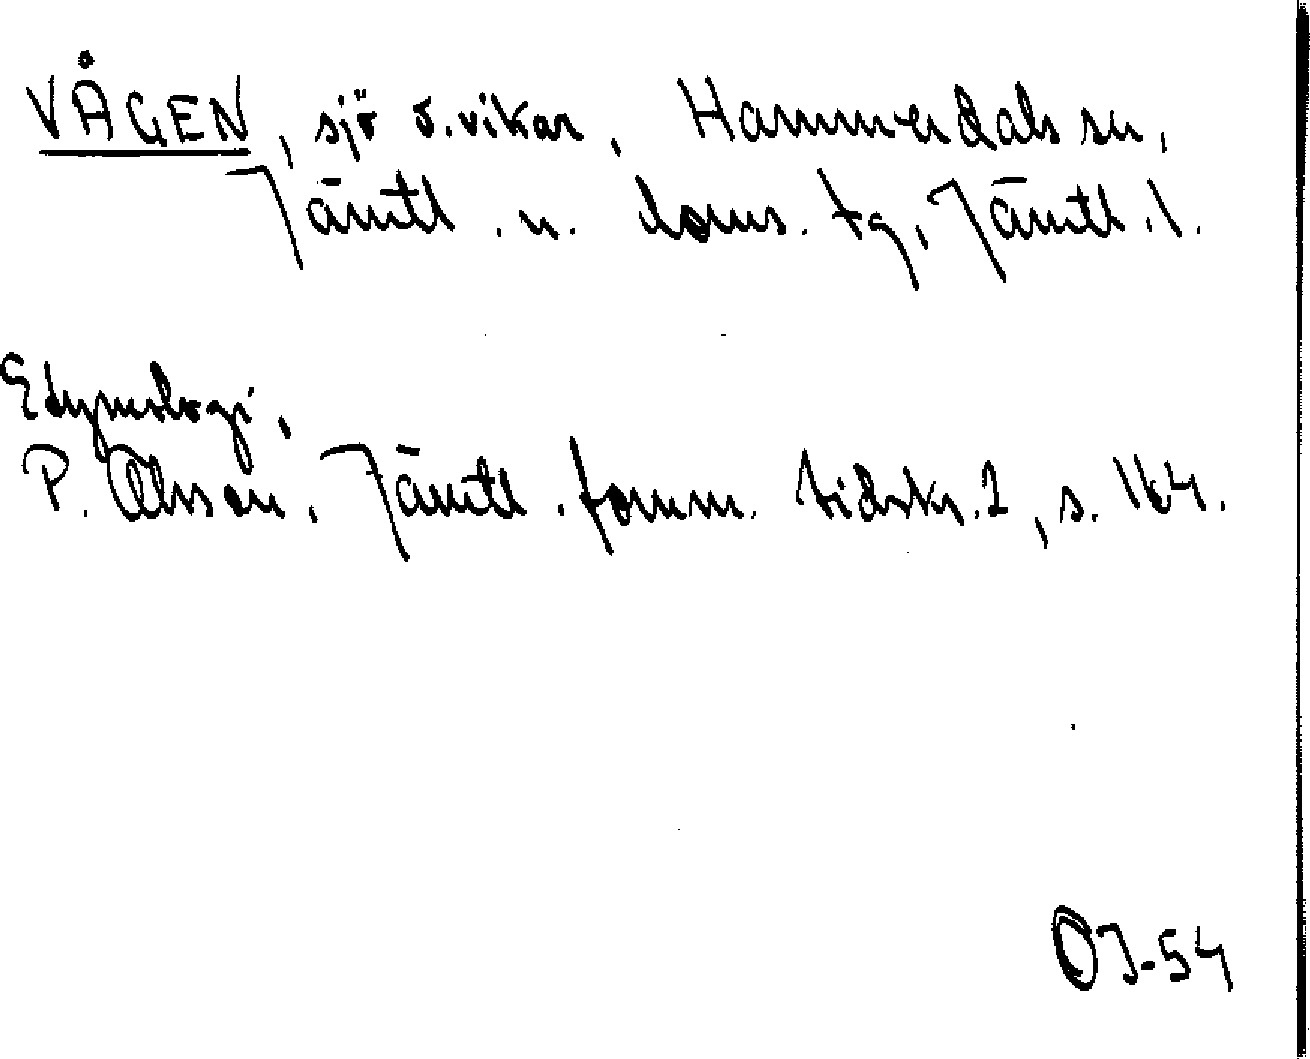 VÅGEN, sjö o. vikar, Hammerdals sn,
Jämtl. n. doms. tg, Jämtl. l.
Etymologi,
P. Olsson. Jämtl. fornm. tidskr. 1, s. 164.
OJ-54